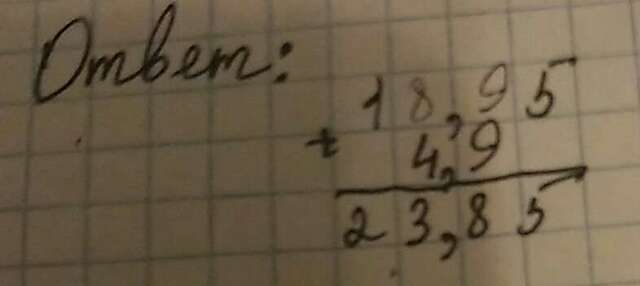 Ответ:
18,95
+ 4,9
23,85